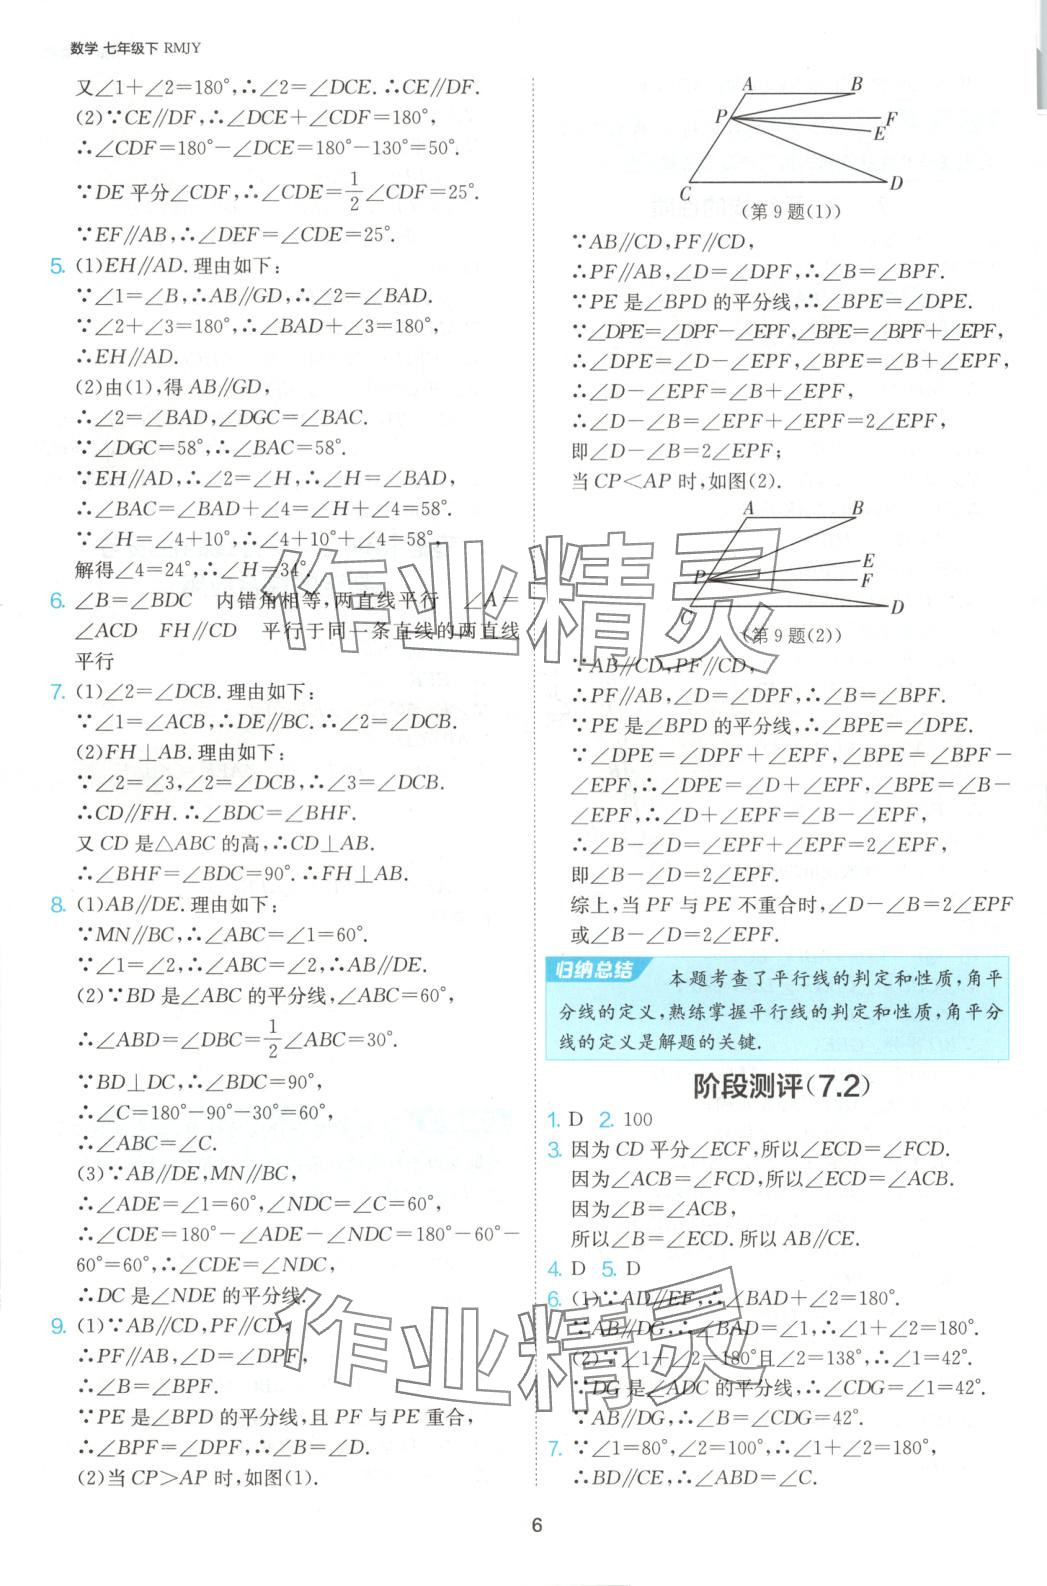 数学 七年级下 RMJY
又∠1+∠2=180°,∴∠2=∠DCE.∴CE∥DF.
(2)∵CE∥DF,∴∠DCE+∠CDF=180°,
∴∠CDF=180°-∠DCE=180°-130°=50°.
∵DE平分∠CDF,∴∠CDE=1/2∠CDF=25°.
∵EF∥AB,∴∠DEF=∠CDE=25°.
5. (1)EH∥AD.理由如下:
∵∠1=∠B,∴AB∥GD,∴∠2=∠BAD.
∵∠2+∠3=180°,∴∠BAD+∠3=180°,
∴EH∥AD.
(2)由(1),得AB∥GD,
∴∠2=∠BAD,∠DGC=∠BAC.
∵∠DGC=58°,∴∠BAC=58°.
∵EH∥AD,∴∠2=∠H,∴∠H=∠BAD,
∴∠BAC=∠BAD+∠4=∠H+∠4=58°.
∵∠H=∠4+10°,∴∠4+10°+∠4=58°,
解得∠4=24°,∴∠H=34°.
6. ∠B=∠BDC 内错角相等,两直线平行 ∠A=
∠ACD FH∥CD 平行于同一条直线的两直线
平行
7. (1)∠2=∠DCB.理由如下:
∵∠1=∠ACB,∴DE∥BC.∴∠2=∠DCB.
(2)FH⊥AB.理由如下:
∵∠2=∠3,∠2=∠DCB,∴∠3=∠DCB.
∴CD∥FH.∴∠BDC=∠BHF.
又CD是△ABC的高,∴CD⊥AB.
∴∠BHF=∠BDC=90°.∴FH⊥AB.
8. (1)AB∥DE.理由如下:
∵MN∥BC,∴∠ABC=∠1=60°.
∵∠1=∠2,∴∠ABC=∠2,∴AB∥DE.
(2)∵BD是∠ABC的平分线,∠ABC=60°,
∴∠ABD=∠DBC=1/2∠ABC=30°.
∵BD⊥DC,∴∠BDC=90°,
∴∠C=180°-90°-30°=60°,
∴∠ABC=∠C.
(3)∵AB∥DE,MN∥BC,
∴∠ADE=∠1=60°,∠NDC=∠C=60°,
∴∠CDE=180°-∠ADE-∠NDC=180°-60°-
60°=60°,∴∠CDE=∠NDC,
∴DC是∠NDE的平分线.
9. (1)∵AB∥CD,PF∥CD,
∴PF∥AB,∠D=∠DPF,
∴∠B=∠BPF.
∵PE是∠BPD的平分线,且PF与PE重合,
∴∠BPF=∠DPF,∴∠B=∠D.
(2)当CP>AP时,如图(1).
A B
P F
E
C D
(第9题(1))
∵AB∥CD,PF∥CD,
∴PF∥AB,∠D=∠DPF,∴∠B=∠BPF.
∵PE是∠BPD的平分线,∴∠BPE=∠DPE.
∵∠DPE=∠DPF-∠EPF,∠BPE=∠BPF+∠EPF,
∴∠DPE=∠D-∠EPF,∠BPE=∠B+∠EPF,
∴∠D-∠EPF=∠B+∠EPF,
∴∠D-∠B=∠EPF+∠EPF=2∠EPF,
即∠D-∠B=2∠EPF;
当CP<AP时,如图(2).
A B
E
P F
C D
(第9题(2))
∵AB∥CD,PF∥CD,
∴PF∥AB,∠D=∠DPF,∴∠B=∠BPF.
∵PE是∠BPD的平分线,∴∠BPE=∠DPE.
∵∠DPE=∠DPF+∠EPF,∠BPE=∠BPF-
∠EPF,∴∠DPE=∠D+∠EPF,∠BPE=∠B-
∠EPF,∴∠D+∠EPF=∠B-∠EPF,
∴∠B-∠D=∠EPF+∠EPF=2∠EPF,
即∠B-∠D=2∠EPF.
综上,当PF与PE不重合时,∠D-∠B=2∠EPF
或∠B-∠D=2∠EPF.
归纳总结 本题考查了平行线的判定和性质,角平
分线的定义,熟练掌握平行线的判定和性质,角平分
线的定义是解题的关键.
阶段测评(7.2)
1. D 2. 100
3. 因为CD平分∠ECF,所以∠ECD=∠FCD.
因为∠ACB=∠FCD,所以∠ECD=∠ACB.
因为∠B=∠ACB,
所以∠B=∠ECD.所以AB∥CE.
4. D 5. D
6. (1)∵AD∥EF,∴∠BAD+∠2=180°.
∵AB∥DG,∴∠BAD=∠1,∴∠1+∠2=180°.
(2)∵∠1+∠2=180°且∠2=138°,∴∠1=42°.
∵DG是∠ADC的平分线,∴∠CDG=∠1=42°.
∵AB∥DG,∴∠B=∠CDG=42°.
7. ∵∠1=80°,∠2=100°,∴∠1+∠2=180°,
∴BD∥CE,∴∠ABD=∠C.
6
作业精灵
作业精灵